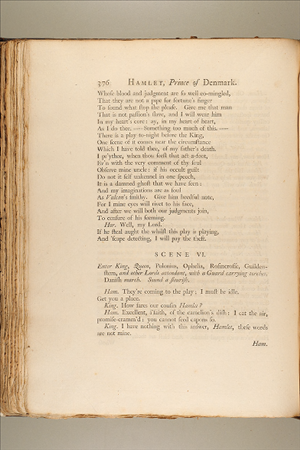 376 HAMLET, Prince of Denmark.
Whose blood and judgment are so well co-mingled,
That they are not a pipe for fortune's finger
To sound what stop she please. Give me that man
That is not passion's slave, and I will wear him
In my heart's core: ay, in my heart of heart,
As I do thee. — Something too much of this. —
There is a play to-night before the King,
One scene of it comes near the circumstance
Which I have told thee, of my father's death.
I pr'ythee, when thou seest that act a-foot,
Ev'n with the very comment of thy soul
Observe mine uncle: if his occult guilt
Do not it self unkennel in one speech,
It is a damned ghost that we have seen:
And my imaginations are as foul
As Vulcan's smithy. Give him heedful note,
For I mine eyes will rivet to his face,
And after we will both our judgments join,
To censure of his seeming.
Hor. Well, my Lord.
If he steal aught the whilst this play is playing,
And 'scape detecting, I will pay the theft.
SCENE VI.
Enter King, Queen, Polonius, Ophelia, Rosincrosse, Guilden-
stern, and other Lords attendant, with a Guard carrying torches.
Danish march. Sound a flourish.
Ham. They're coming to the play; I must be idle.
Get you a place.
King. How fares our cousin Hamlet?
Ham. Excellent, i'faith, of the camelion's dish: I eat the air,
promise-cramm'd: you cannot feed capons so.
King. I have nothing with this answer, Hamlet, these words
are not mine.
Ham.